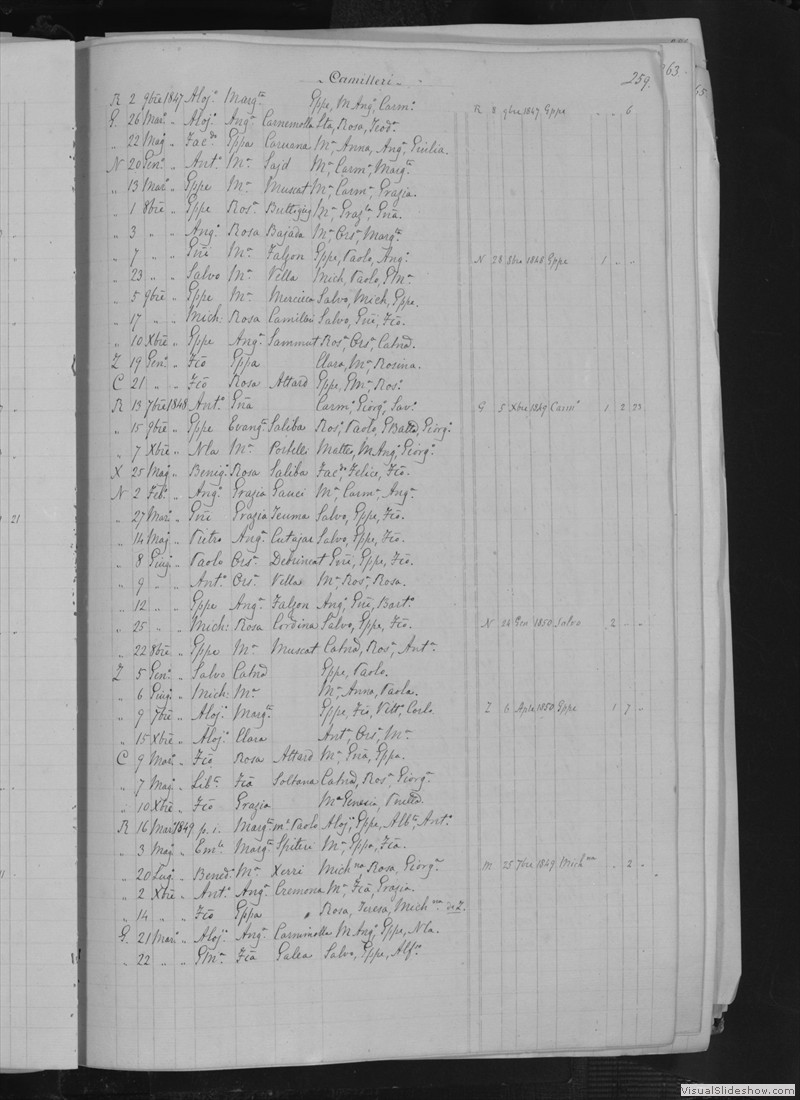 Camilleri
259.
263.
R 2 9bre 1847 Aloj.o Marg.ta Gppe, M. Ang.a, Carm.a R 8 9bre 1847 Gppe " " 6
G. 26 Mar.o " Aloj.o Ang.a Carnemolla Sta, Rosa, Teod.a
" 22 Mag. " Fac.do Gppa Caruana M.a, Anna, Ang.a Giulia.
N 20 Gen.o " Ant.o M.a Sajd M.a, Carm.a, Marg.ta
" 13 Mar.o " Gppe M.a Muscat M.a, Carm.a, Grazia.
" 1 8bre " Gppe Ros.a Buttigieg M.a, Graz.la, Gña.
" 3 " " Ang.o Rosa Bajada M.a, Ors.a, Marg.ta
" 7 " " Gñi M.a Falzon Gppe, Paolo, Ang.o N 28 8bre 1848 Gppe 1 " "
" 23 " " Salvo M.a Vella Mich, Paolo, GM.a
" 5 9bre " Gppe M.a Mercieca Salvo, Mich, Gppe.
" 17 " " Mich: Rosa Camilleri Salvo, Gñi, Fco.
" 10 Xbre " Gppe Ang.a Sammut Ros.a, Ors.a, Catnd.
Z 19 Gen.o " Fco Gppa Clara, M.a, Rosina.
C 21 " " Fco Rosa Attard Gppe, GM.a, Ros.o
R 13 7bre 1848 Ant.o Gña Carm.o, Giorg.o, Sav.o G 5 Xbre 1849 Carm.o 1 2 23
" 15 9bre " Gppe Evang.a Saliba Ros.o, Paolo, GBatta, Giorg.o
" 7 Xbre " Nla M.a Portelli Matteo, M. Ang.o, Giorg.o
X 25 Mag. " Benig.o Rosa Saliba Fac.do, Felice, Fco.
N 2 Feb.o " Ang.o Grazia Gauci M.a, Carm.a, Ang.a
" 27 Mar.o " Gñi Grazia Teuma Salvo, Gppe, Fco.
" 14 Mag. " Pietro Ang.a Cutajar Salvo, Gppe, Fco.
" 8 Giug. " Paolo Ors.a Debrincat Gñi, Gppe, Fco.
" 9 " " Ant.o Ors.a Vella M.a, Ros.a, Rosa.
" 12 " " Gppe Ang.a Falzon Ang.o, Gñi, Bart.o
" 25 " " Mich: Rosa Cordina Salvo, Gppe, Fco. N 24 Gen 1850 Salvo 2 " "
" 22 8bre " Gppe M.a Muscat Catnd, Ros.a, Ant.a
Z 5 Gen.o " Salvo Catnd Gppe, Paolo.
" 6 Giug. " Mich: M.a M.a, Anna, Paola.
" 9 7bre " Aloj.o Marg.ta Gppe, Fco, Vitt.o, Carlo. Z 6 Aple 1850 Gppe 1 7 "
" 15 Xbre " Aloj.o Clara Ant.a, Ors.a, M.a
C 9 Mar.o " Fco Rosa Attard M.a, Gña, Gppa.
" 7 Mag. " Lib.to Fca Soltana Catnd, Ros.a, Giorg.a
" 10 Xbre " Fco Grazia M.a Genesia,
R 16 Mar.o 1849 p. i. Marg.ta m.e Paolo Aloj.o, Gppe, Alb.to, Ant.o
" 3 Mag. " Em.le Marg.ta Spiteri M.a, Gppa, Fca.
" 20 Lug. " Bened.o M.a Xerri Mich.na, Rosa, Giorg.a M 25 7bre 1849 Mich.na " 2 "
" 2 Xbre " Ant.o Ang.a Cremona M.a, Fca, Grazia.
" 14 " " Fco Gppa " Rosa, Teresa, Mich.na in Z.
G. 21 Mar.o " Aloj.o Ang.a Carnimolla M. Ang.o, Gppe, Nla.
" 22 " " GM.a Fca Galea Salvo, Gppe, Alf.o
21
VisualSlideshow.com